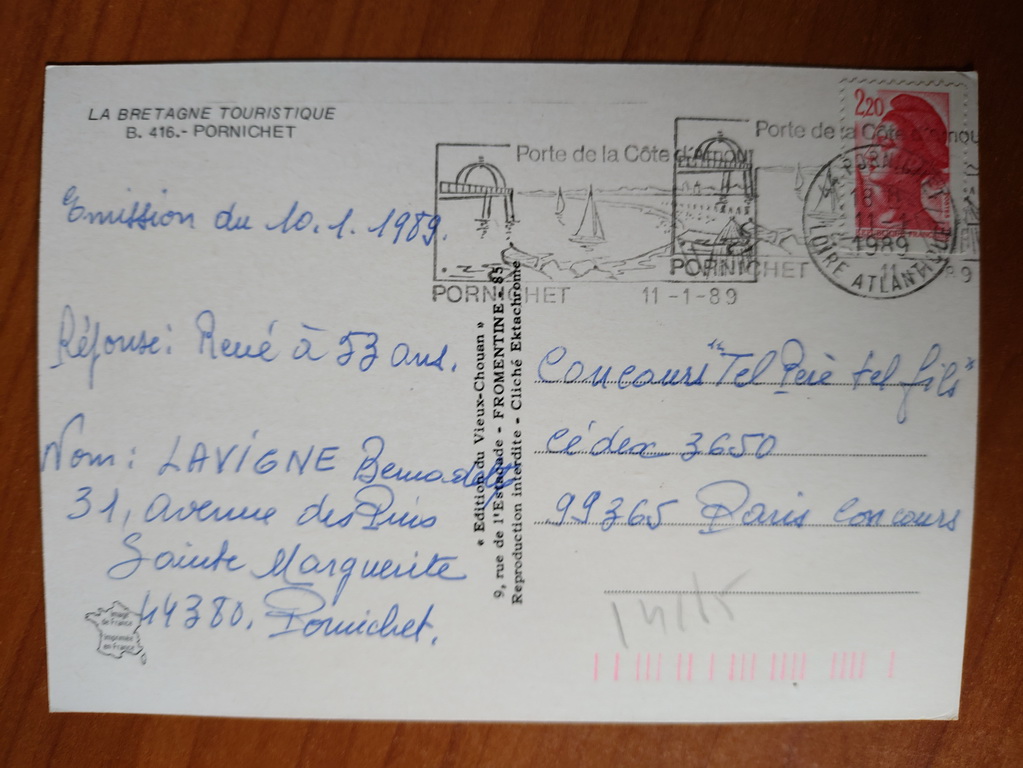 LA BRETAGNE TOURISTIQUE
B. 416.- PORNICHET
Emission du 10.1.1989.
Réponse: René à 53 ans.
Nom: LAVIGNE Bernadette
31, avenue des Pins
Sainte Marguerite
44380. Pornichet.
Image
de France
Imprimée
en France
« Edition du Vieux-Chouan »
9, rue de l'Estacade - FROMENTINE - 85
Reproduction interdite - Cliché Ektachrome
Porte de la Côte d'Amour
PORNICHET 11-1-89
Porte de la Côte d'Amou
PORNICHET 11 89
2,20
44 PORNICHET
18 H
11-1
1989
LOIRE ATLANTIQUE
Concours "Tel Père tel fils"
Cédex 3650
99365 Paris Concours